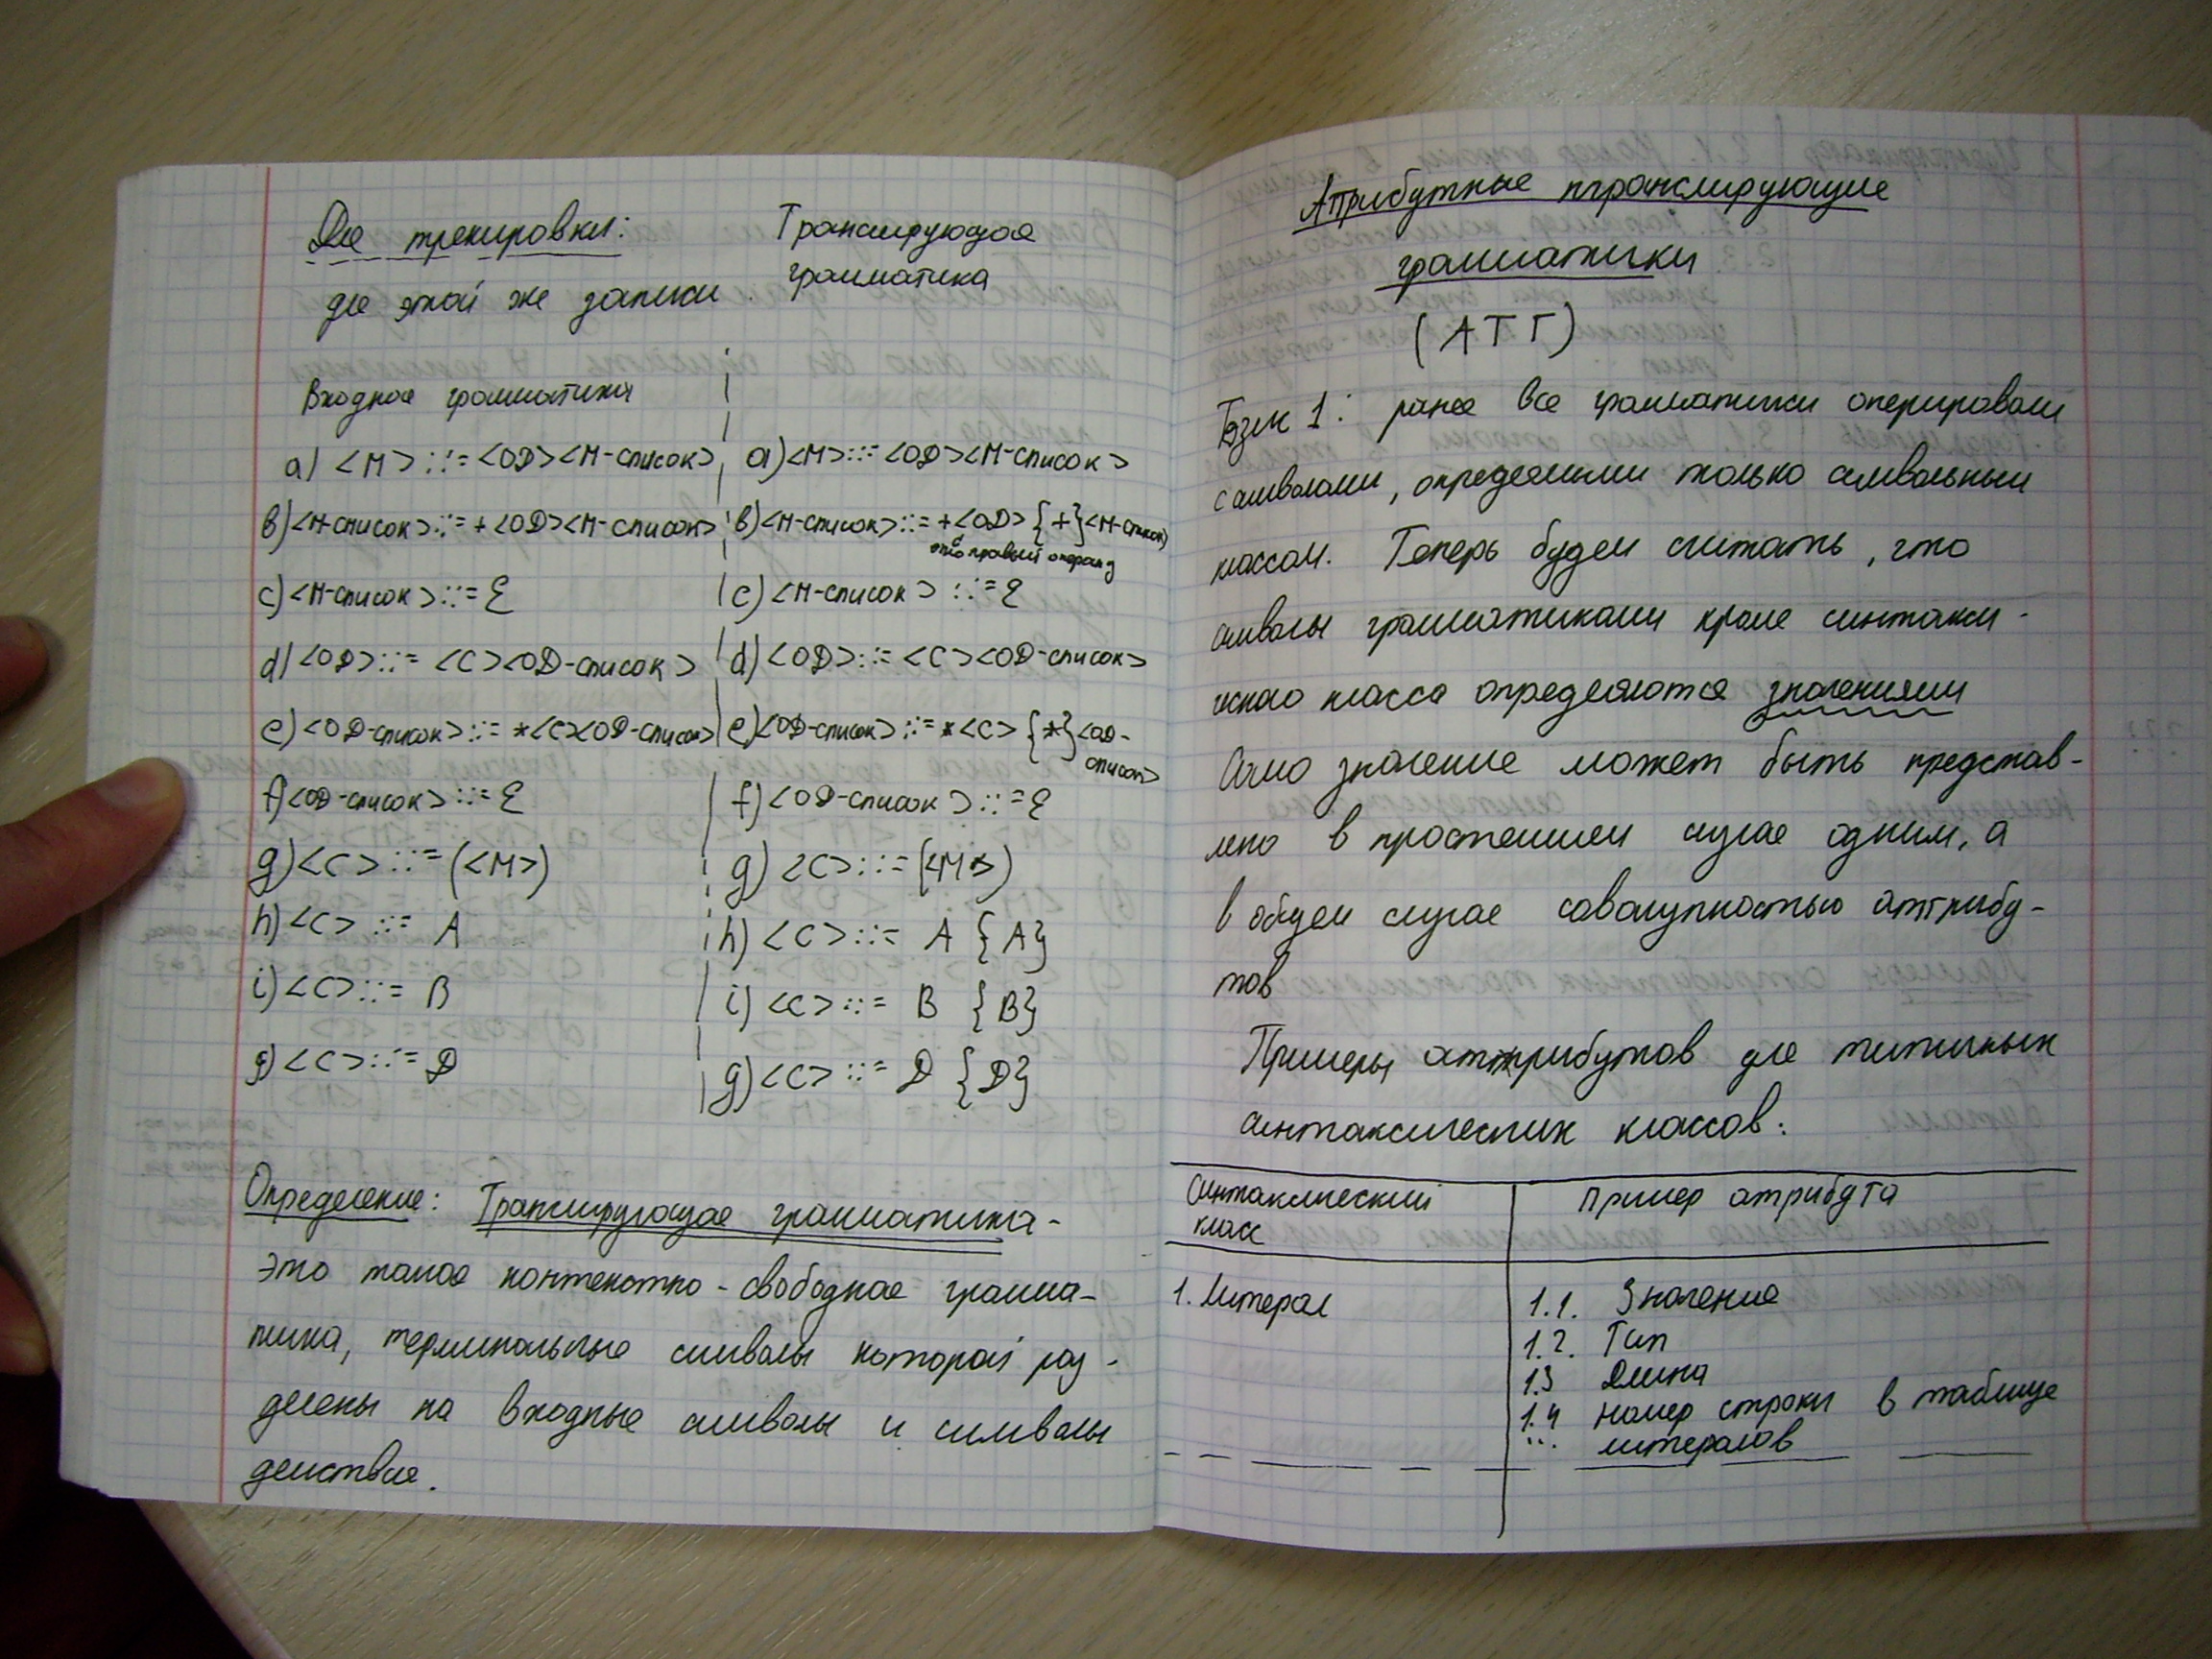 Для тренировки:
для этой же записи
Транслирующая
грамматика
Входная грамматика
a) <M> ::= <OD><M-список>
a) <M> ::= <OD><M-список>
b) <M-список> ::= + <OD><M-список>
b) <M-список> ::= + <OD> {+} <M-список>
это правый операнд
c) <M-список> ::= ε
c) <M-список> ::= ε
d) <OD> ::= <C><OD-список>
d) <OD> ::= <C><OD-список>
e) <OD-список> ::= *<C><OD-список>
e) <OD-список> ::= *<C> {*} <OD-
список>
f) <OD-список> ::= ε
f) <OD-список> ::= ε
g) <C> ::= (<M>)
g) <C> ::= (<M>)
h) <C> ::= A
h) <C> ::= A {A}
i) <C> ::= B
i) <C> ::= B {B}
g) <C> ::= D
g) <C> ::= D {D}
Определение: Транслирующая грамматика -
это такая контекстно-свободная грамма-
тика, терминальные символы которой раз-
делены на входные символы и символы
действия.
Атрибутные транслирующие
грамматики
(АТГ)
1: ранее все грамматики оперировали
символами, определяемыми только символьным
классом. Теперь будем считать, что
символы грамматиками кроме синтакси-
ческого класса определяются значениями
Само значение может быть представ-
лено в простейшем случае одним, а
в общем случае совокупностью аттрибу-
тов
Примеры аттрибутов для типичных
синтаксических классов:
Синтаксический
класс
Пример атрибута
1. Литерал
1.1. Значение
1.2. Тип
1.3 Длина
1.4 Номер строки в таблице
... литералов